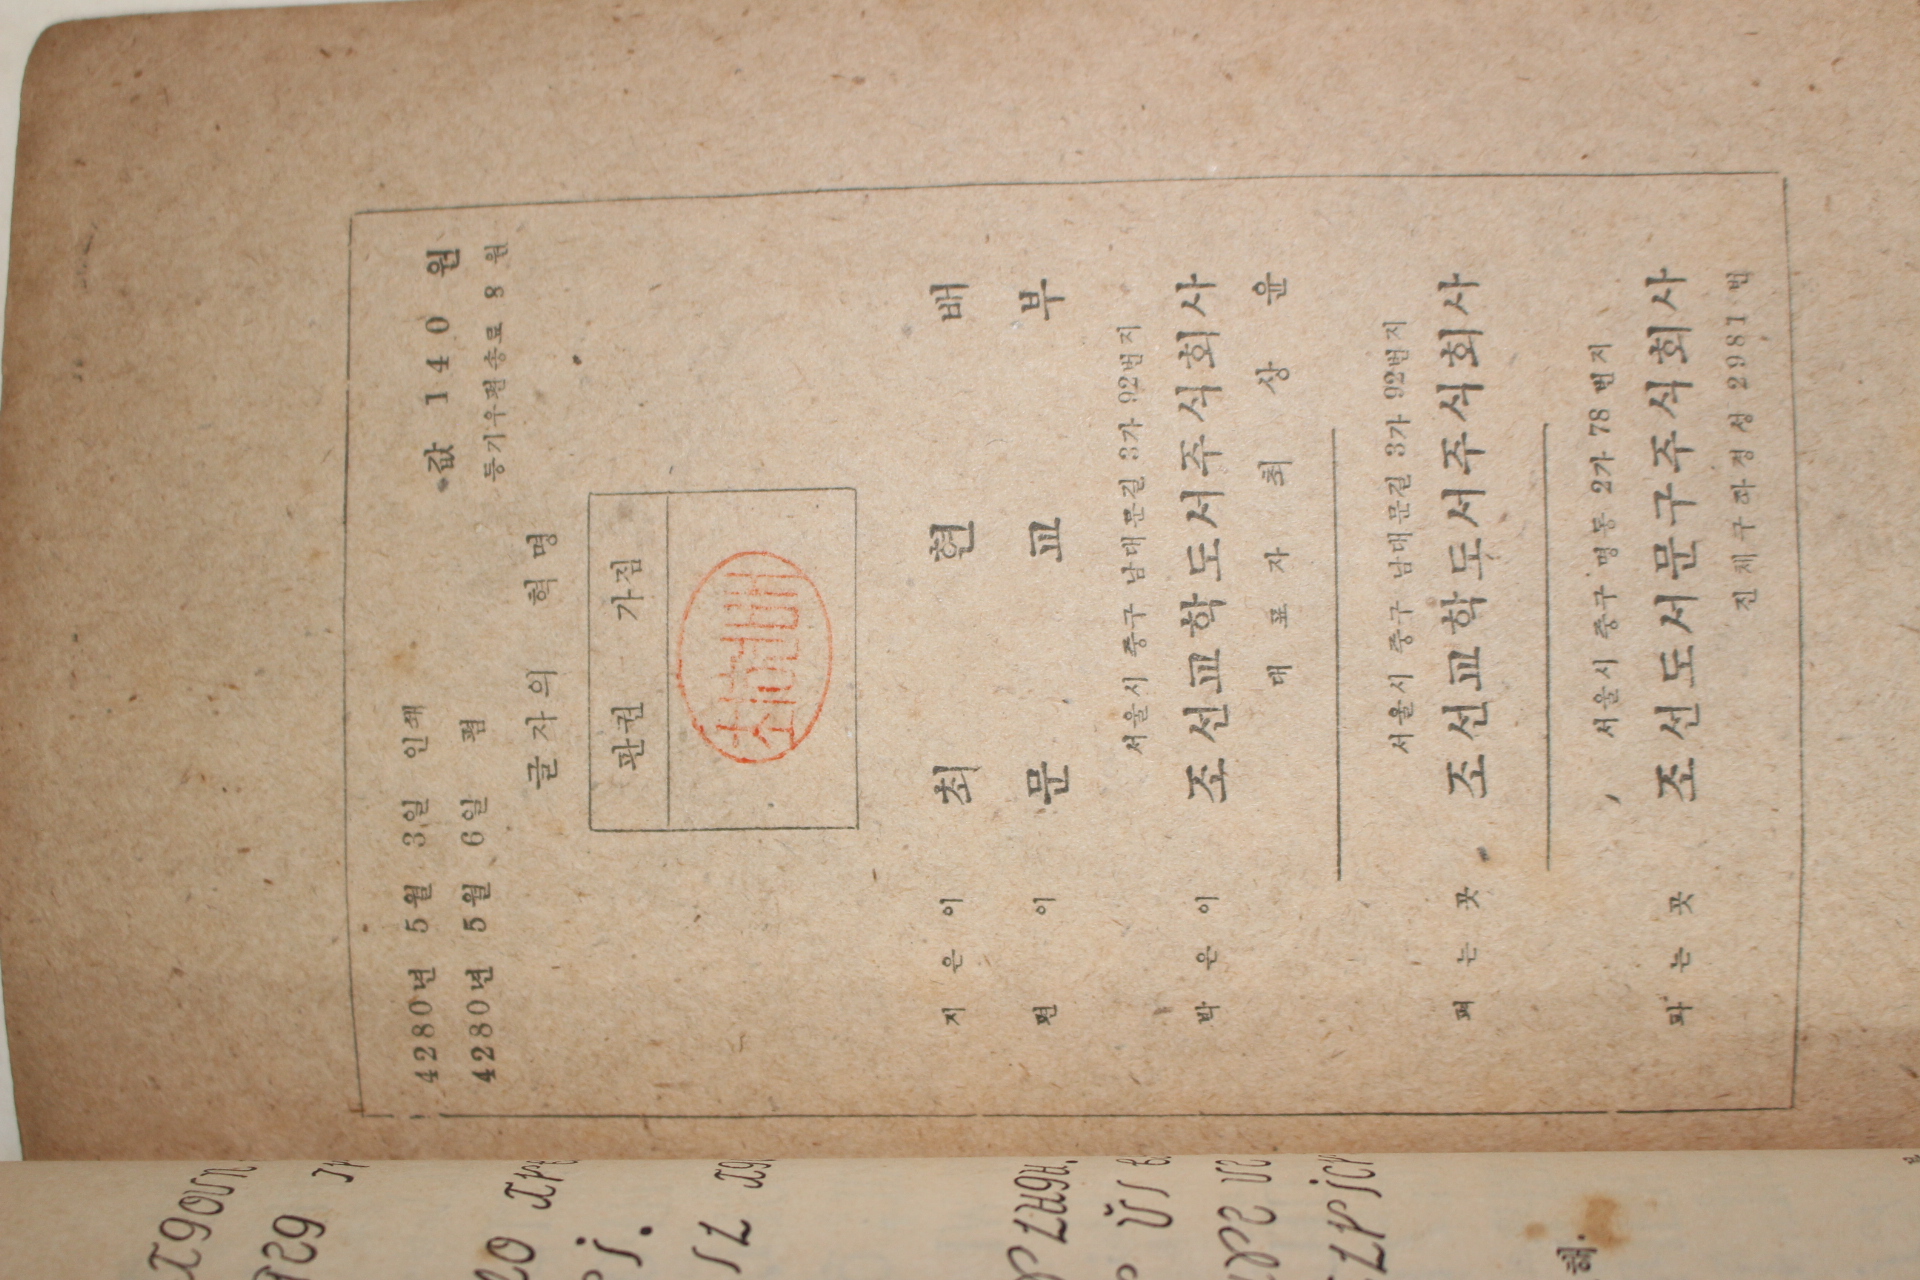 4280년 5월 3일 인쇄
4280년 5월 6일 폄
값 140 원
등기우편송료 8 원
글자의 혁명
판권 가짐
최현배
지은이 최현배
편이 문교부
서울시 중구 남대문길 3가 92번지
박은이 조선교학도서주식회사
대표자 최상윤
서울시 중구 남대문길 3가 92번지
펴는곳 조선교학도서주식회사
서울시 중구 명동 2가 78 번지
파는곳 조선도서문구주식회사
진체구좌경성 2981 번
해.